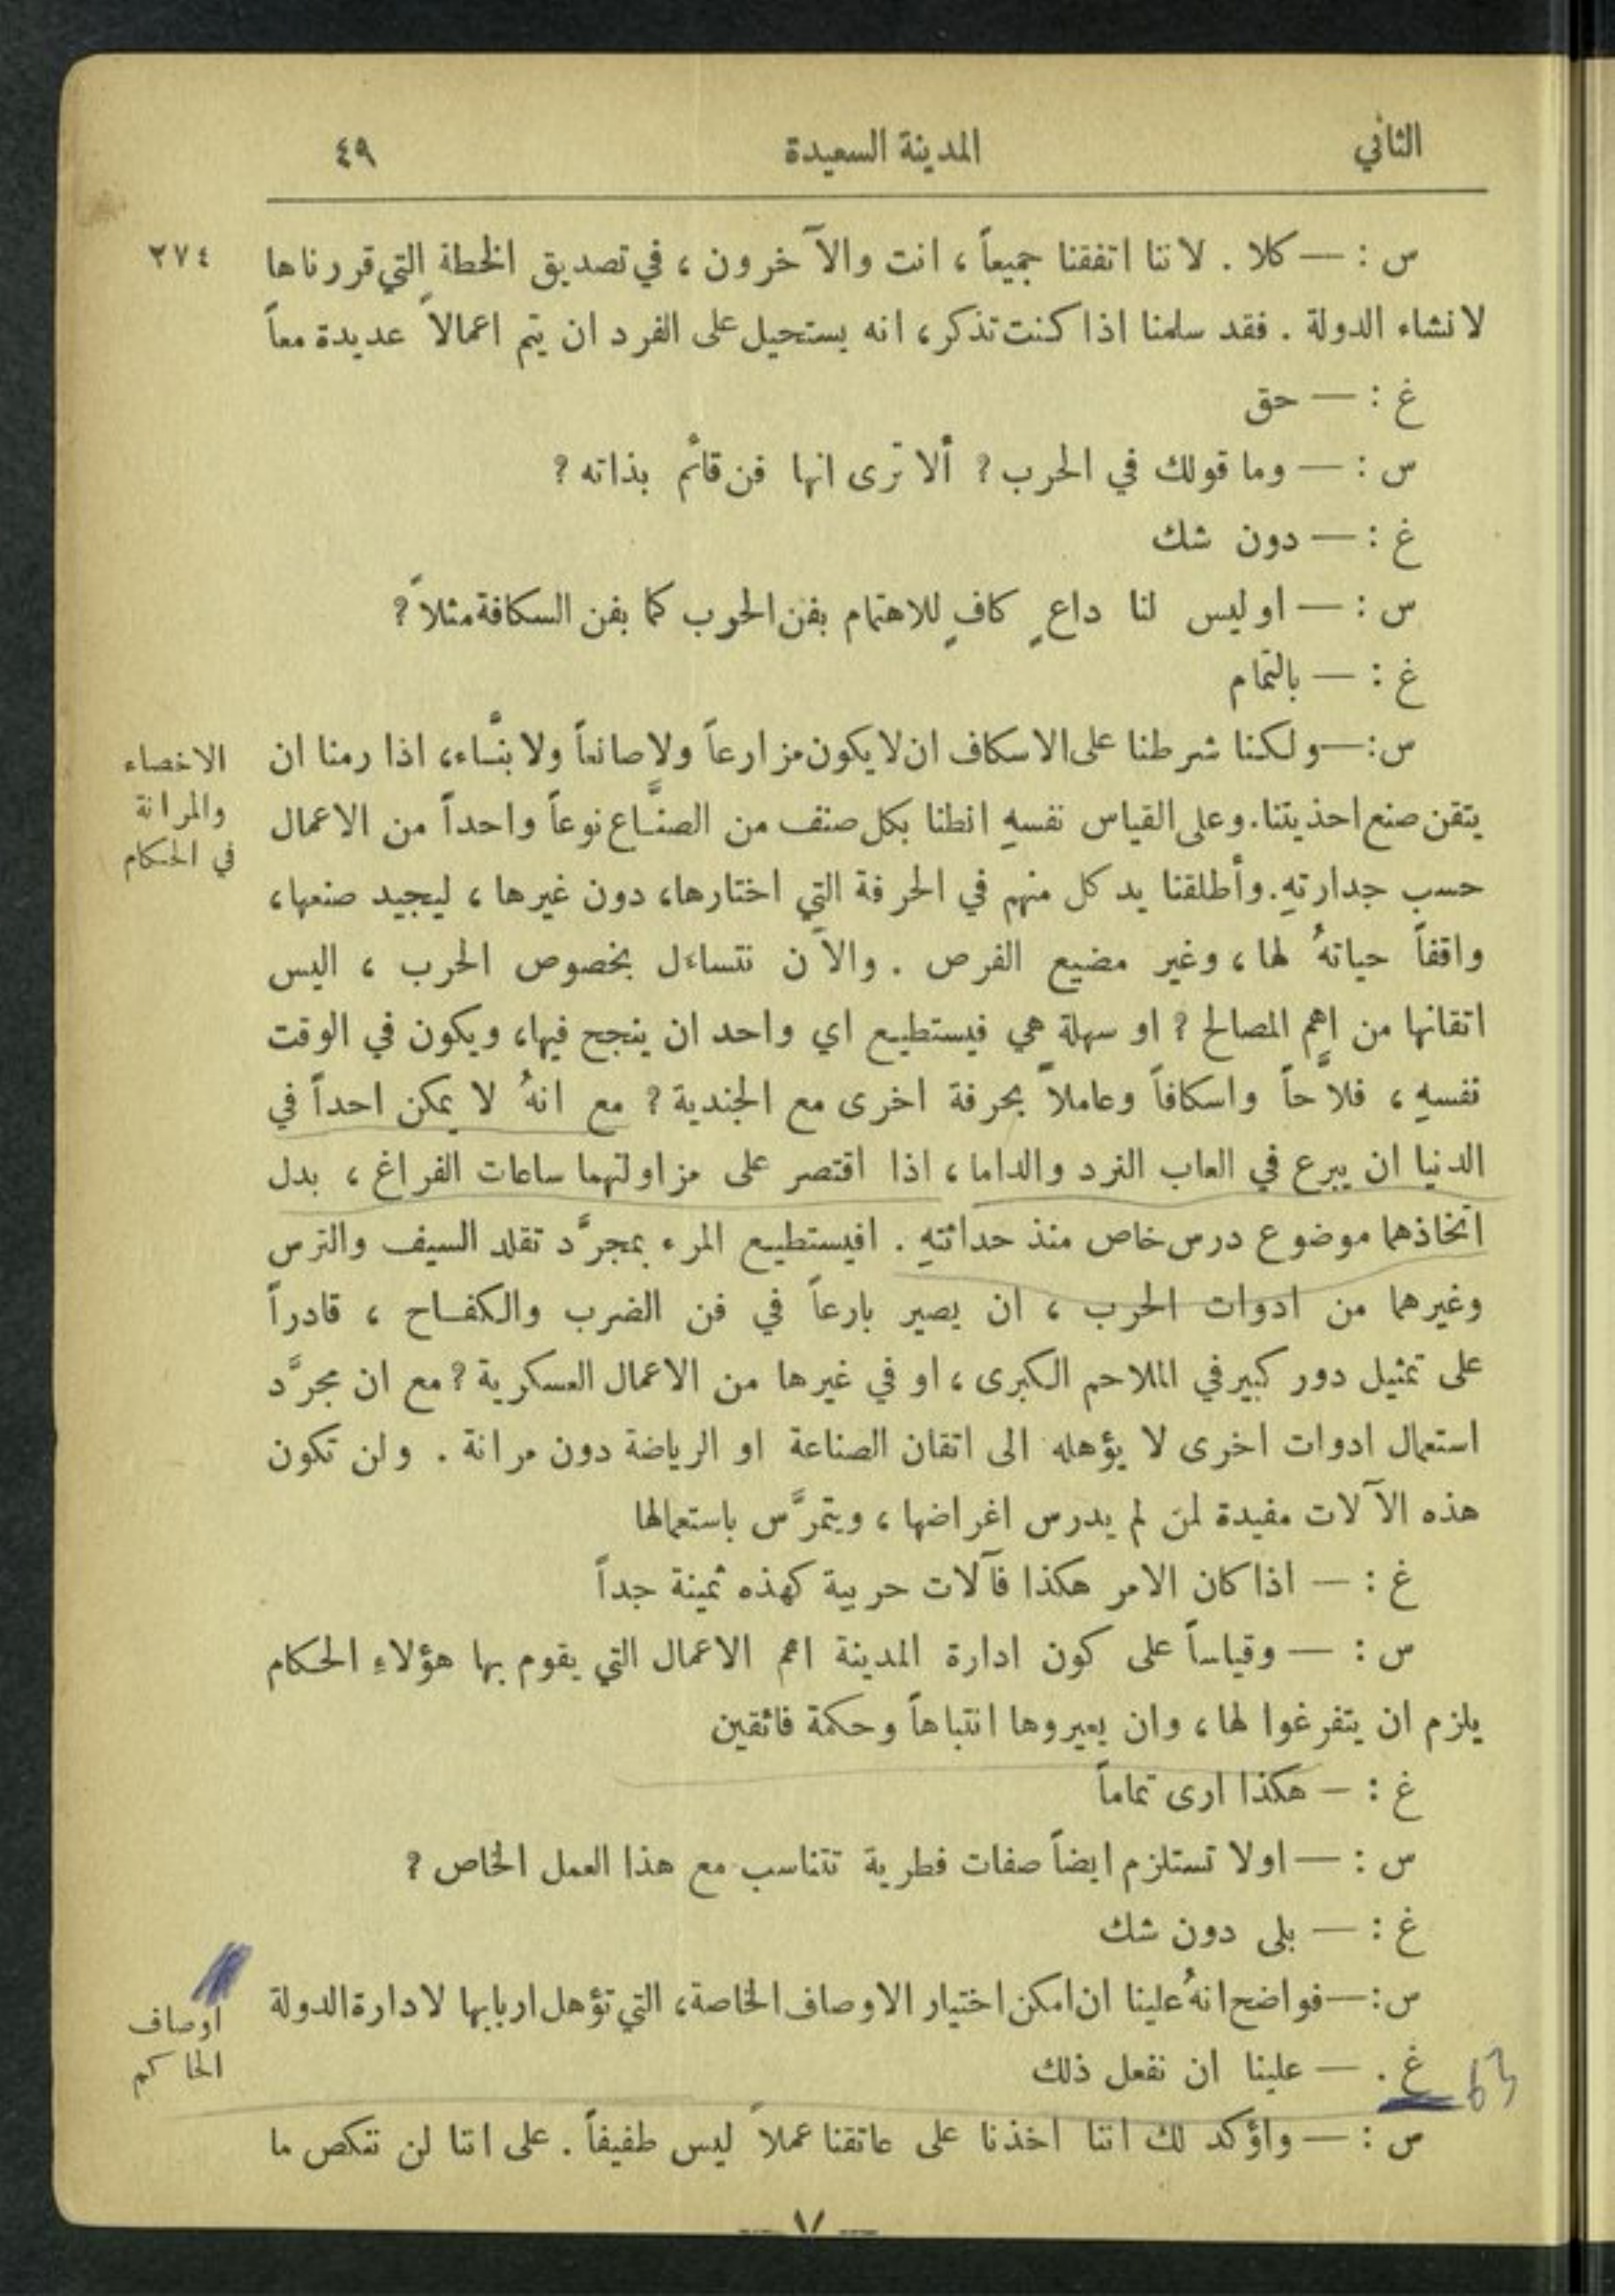 الثاني المدينة السعيدة ٤٩
س : — كلا . لاننا اتفقنا جميعاً ، انت والآخرون ، في تصديق الخطة التي قررناها ٢٧٤
لانشاء الدولة . فقد سلمنا اذا كنت تذكر ، انه يستحيل على الفرد ان يتم اعمالاً عديدة معاً
غ : — حق
س : — وما قولك في الحرب ؟ ألا ترى انها فن قائم بذاته ؟
غ : — دون شك
س : — او ليس لنا داعٍ كافٍ للاهتمام بفن الحرب كما بفن السكافة مثلاً ؟
غ : — بالتمام
س : — ولكنا شرطنا على الاسكاف ان لا يكون مزارعاً ولا صانعاً ولا بنَّاء ، اذا رمنا ان
الاخصاء
والمرانة
في الحكام
يتقن صنع احذيتنا . وعلى القياس نفسهِ انطنا بكل صنف من الصنَّاع نوعاً واحداً من الاعمال
حسب جدارتهِ . وأطلقنا يد كل منهم في الحرفة التي اختارها ، دون غيرها ، ليجيد صنعها ،
واقفاً حياتهُ لها ، وغير مضيع الفرص . والآن نتساءل بخصوص الحرب ، اليس
اتقانها من اهم المصالح ؟ او سهلة هي فيستطيع اي واحد ان ينجح فيها ، ويكون في الوقت
نفسهِ ، فلاَّحاً واسكافاً وعاملاً بحرفة اخرى مع الجندية ؟ مع انهُ لا يمكن احداً في
الدنيا ان يبرع في العاب النرد والداما ، اذا اقتصر على مزاولتهما ساعات الفراغ ، بدل
اتخاذهما موضوع درس خاص منذ حداثتهِ . افيستطيع المرء بمجرَّد تقلد السيف والترس
وغيرهما من ادوات الحرب ، ان يصير بارعاً في فن الضرب والكفاح ، قادراً
على تمثيل دور كبير في الملاحم الكبرى ، او في غيرها من الاعمال العسكرية ؟ مع ان مجرَّد
استعمال ادوات اخرى لا يؤهله الى اتقان الصناعة او الرياضة دون مرانة . ولن تكون
هذه الآلات مفيدة لمن لم يدرس اغراضها ، ويتمرَّس باستعمالها
غ : — اذا كان الامر هكذا فآلات حربية كهذه ثمينة جداً
س : — وقياساً على كون ادارة المدينة اهم الاعمال التي يقوم بها هؤلاءِ الحكام
يلزم ان يتفرغوا لها ، وان يعيروها انتباهاً وحكمة فائقين
غ : — هكذا ارى تماماً
س : — اولا تستلزم ايضاً صفات فطرية تتناسب مع هذا العمل الخاص ؟
غ : — بلى دون شك
س : — فواضح انهُ علينا ان امكن اختيار الاوصاف الخاصة ، التي تؤهل اربابها لادارة الدولة
اوصاف
الحاكم
غ . — علينا ان نفعل ذلك
س : — واؤكد لك اننا اخذنا على عاتقنا عملاً ليس طفيفاً . على اننا لن ننكص ما
— ٧ —